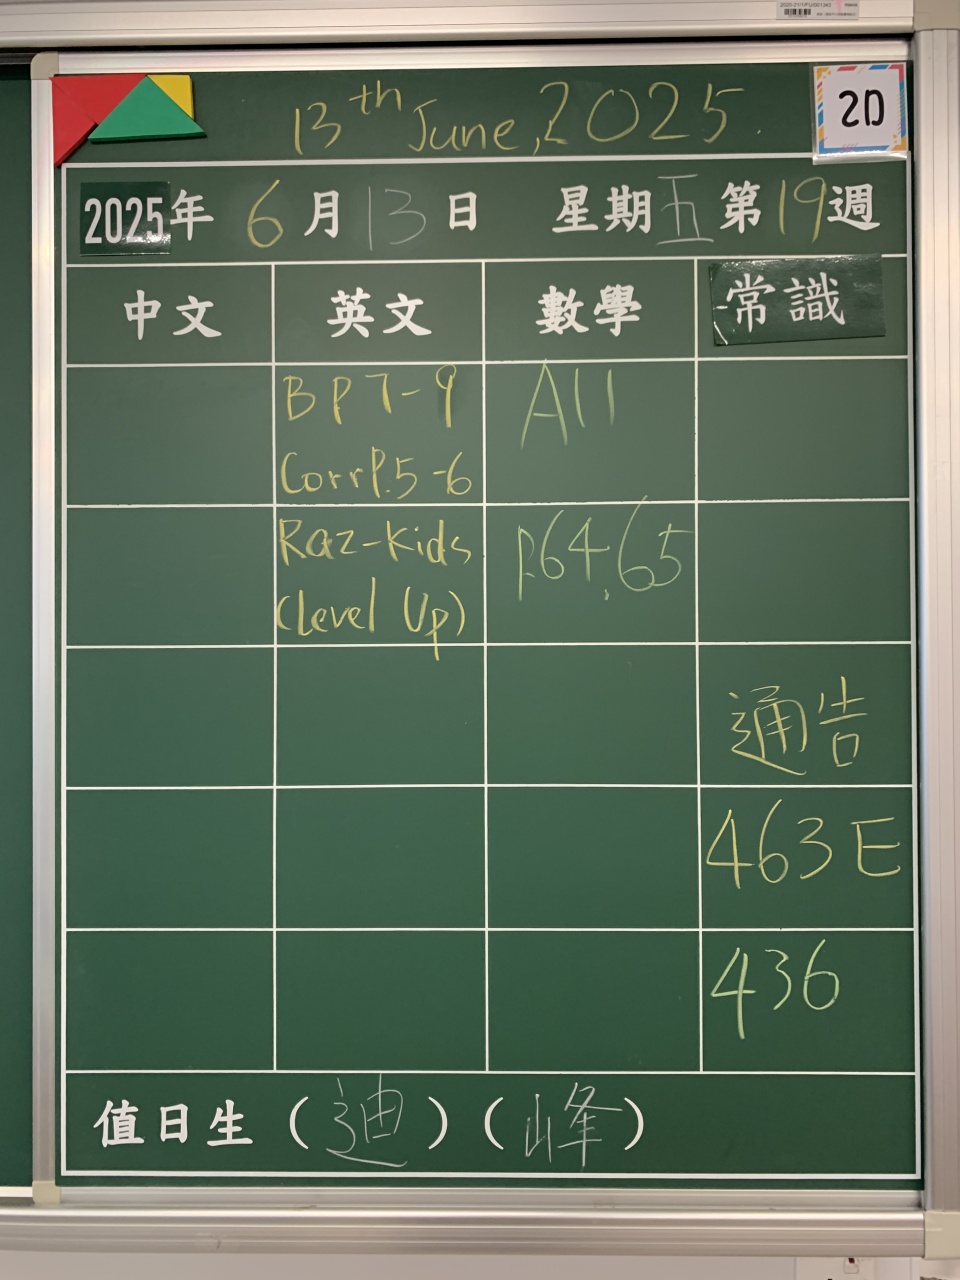 13th June, 2025.
2D
2025年 6月13日 星期五 第19週
中文 英文 數學 常識
B P7-9 A11
Corr P.5-6
Raz-Kids P.64,65
(Level Up)
通告
463E
436
值日生 (迪) (峰)